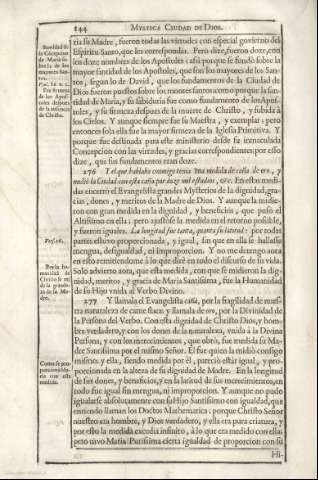 144 MYSTICA CIUDAD DE DIOS.
ria su Madre, fueron todas las virtudes con especial govierno del
Espiritu Santo, que les correspondia. Pero dize, fueron doze, con
los doze nombres de los Apostoles: assi porque se fundò sobre la
mayor santidad de los Apostoles, que son los mayores de los San-
tos, segun lo de David, que los fundamentos de la Ciudad de
Dios fueron puestos sobre los montes santos: como porque la san-
tidad de Maria, y su sabiduria fue como fundamento de los Apos-
toles, y su firmeza despues de la muerte de Christo, y subida à
los Cielos. Y aunque siempre fue su Maestra, y exemplar; pero
entonces sola ella fue la mayor firmeza de la Iglesia Primitiva. Y
porque fue destinada para este ministerio desde su inmaculada
Concepcion con las virtudes, y gracias correspondientes por esso
dize, que sus fundamentos eran doze.
276 Y el que hablaba conmigo tenia una medida de caña de oro, y
midiò la Ciudad con esta caña por doze mil estadios, &c. En estas medi-
das encerrò el Evangelista grandes Mysterios de la dignidad, gra-
cias, dones, y meritos de la Madre de Dios. Y aunque la midie-
ron con gran medida en la dignidad, y beneficios, que puso el
Altissimo en ella; pero ajustòse la medida en el retorno possible,
y fueron iguales. La longitud fue tanta, quanta su latitud: por todas
partes estuvo proporcionada, y igual, sin que en ella se hallasse
mengua, desigualdad, ni improporcion. Y no me detengo aora
en esto remitiendome à lo que dirè en todo el discurso de su vida.
Solo advierto aora, que esta medida, con que se midieron la dig-
nidad, meritos, y gracia de Maria Santissima, fue la Humanidad
de su Hijo unida al Verbo Divino.
277 Y llamala el Evangelista caña, por la fragilidad de nues-
tra naturaleza de carne flaca: y llamala de oro, por la Divinidad de
la Persona del Verbo. Con esta dignidad de Christo Dios, y hom-
bre verdadero, y con los dones de la naturaleza, unida à la Divina
Persona, y con los merecimientos, que obrò, fue medida su Ma-
dre Santissima por el mismo Señor. El fue quien la midiò consigo
mismo, y ella, siendo medida por èl, pareciò estàr igual, y pro-
porcionada en la alteza de su dignidad de Madre. En la longitud
de sus dones, y beneficios, y en la latitud de sus merecimientos, en
todo fue igual sin mengua, ni improporcion. Y aunque no pudo
igualarse absolutamente con su Hijo Santissimo con igualdad, que
entiendo llaman los Doctos Mathematica: porque Christo Señor
nuestro era hombre, y Dios verdadero, y ella era pura criatura, y
por esto la medida excedia infinito, à lo que era medido con ella:
pero tuvo Maria Purissima cierta igualdad de proporcion con su
Hi-
de Maria so-
bre la de los
mayores San-
tos.
Fue firmeza
de los Apos-
toles despues
de la muerte
de Christo.
Por la Hu-
manidad de
Christo
Ma-
dre.